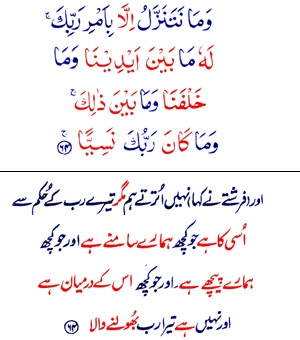 وَمَا نَتَنَزَّلُ اِلَّا بِاَمْرِ رَبِّكَ ۚ
لَهٗ مَا بَيْنَ اَيْدِيْنَا وَمَا
خَلْفَنَا وَمَا بَيْنَ ذٰلِكَ ۚ
وَمَا كَانَ رَبُّكَ نَسِيًّا ۚ ﴿۶۴﴾
اور (فرشتے نے کہا) نہیں اُترتے ہم مگر تیرے رب کے حُکم سے
اُسی کا ہے جو کچھ ہمارے سامنے ہے اور جو کچھ
ہمارے پیچھے ہے۔ اور جو کچھ اس کے درمیان ہے
اور نہیں ہے تیرا رب بھُولنے والا ﴿۶۴﴾